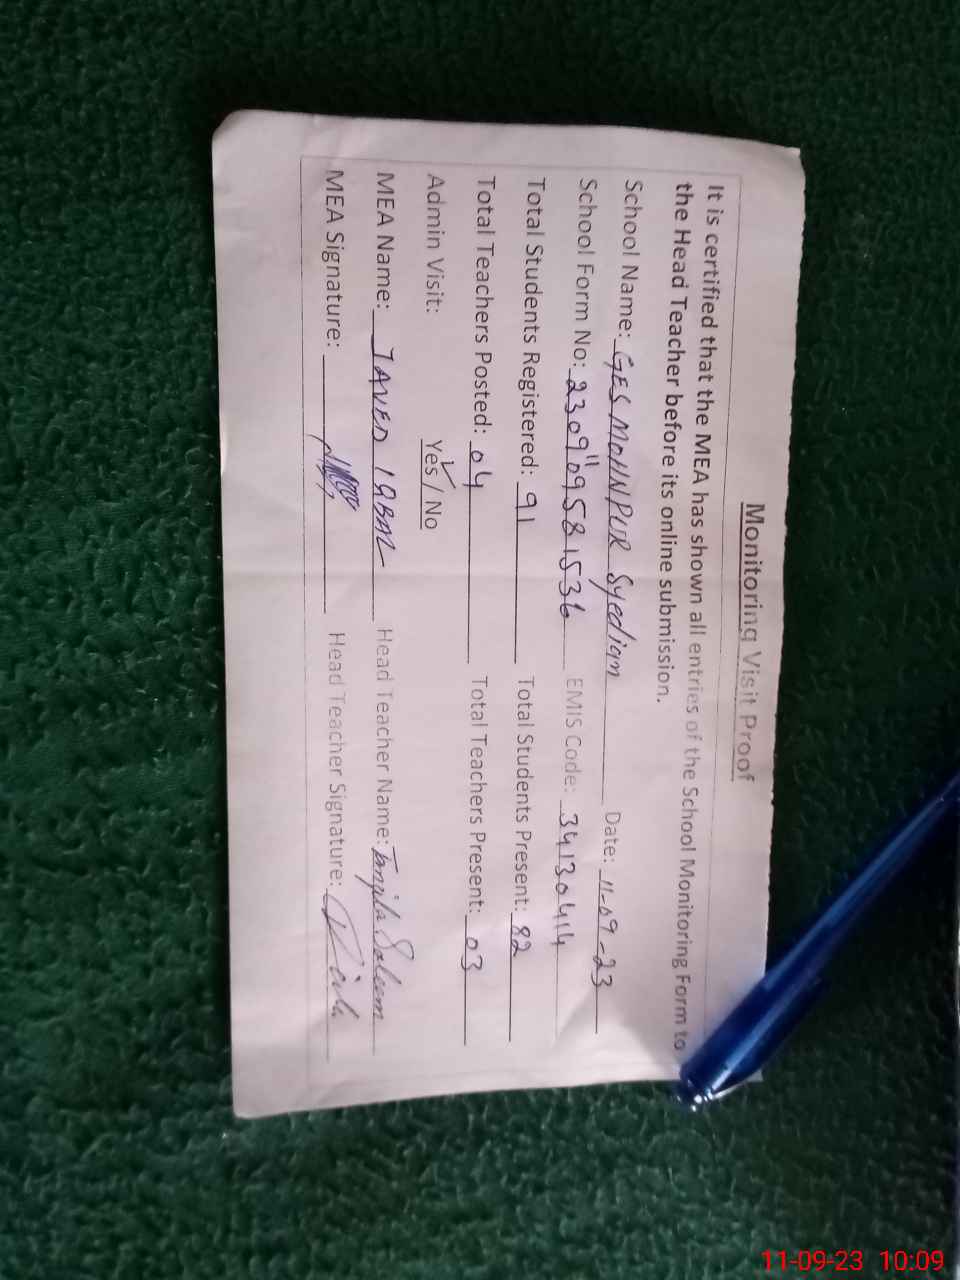 Monitoring Visit Proof
It is certified that the MEA has shown all entries of the School Monitoring Form to
the Head Teacher before its online submission.
School Name: GES MOHNPUR Syedian Date: 11-09-23
School Form No: 23091109581536 EMIS Code: 34130414
Total Students Registered: 91 Total Students Present: 82
Total Teachers Posted: 04 Total Teachers Present: 03
Admin Visit: Yes / No
MEA Name: JAVED IQBAL Head Teacher Name: Tanzila Saleem
MEA Signature: Head Teacher Signature:
11-09-23 10:09